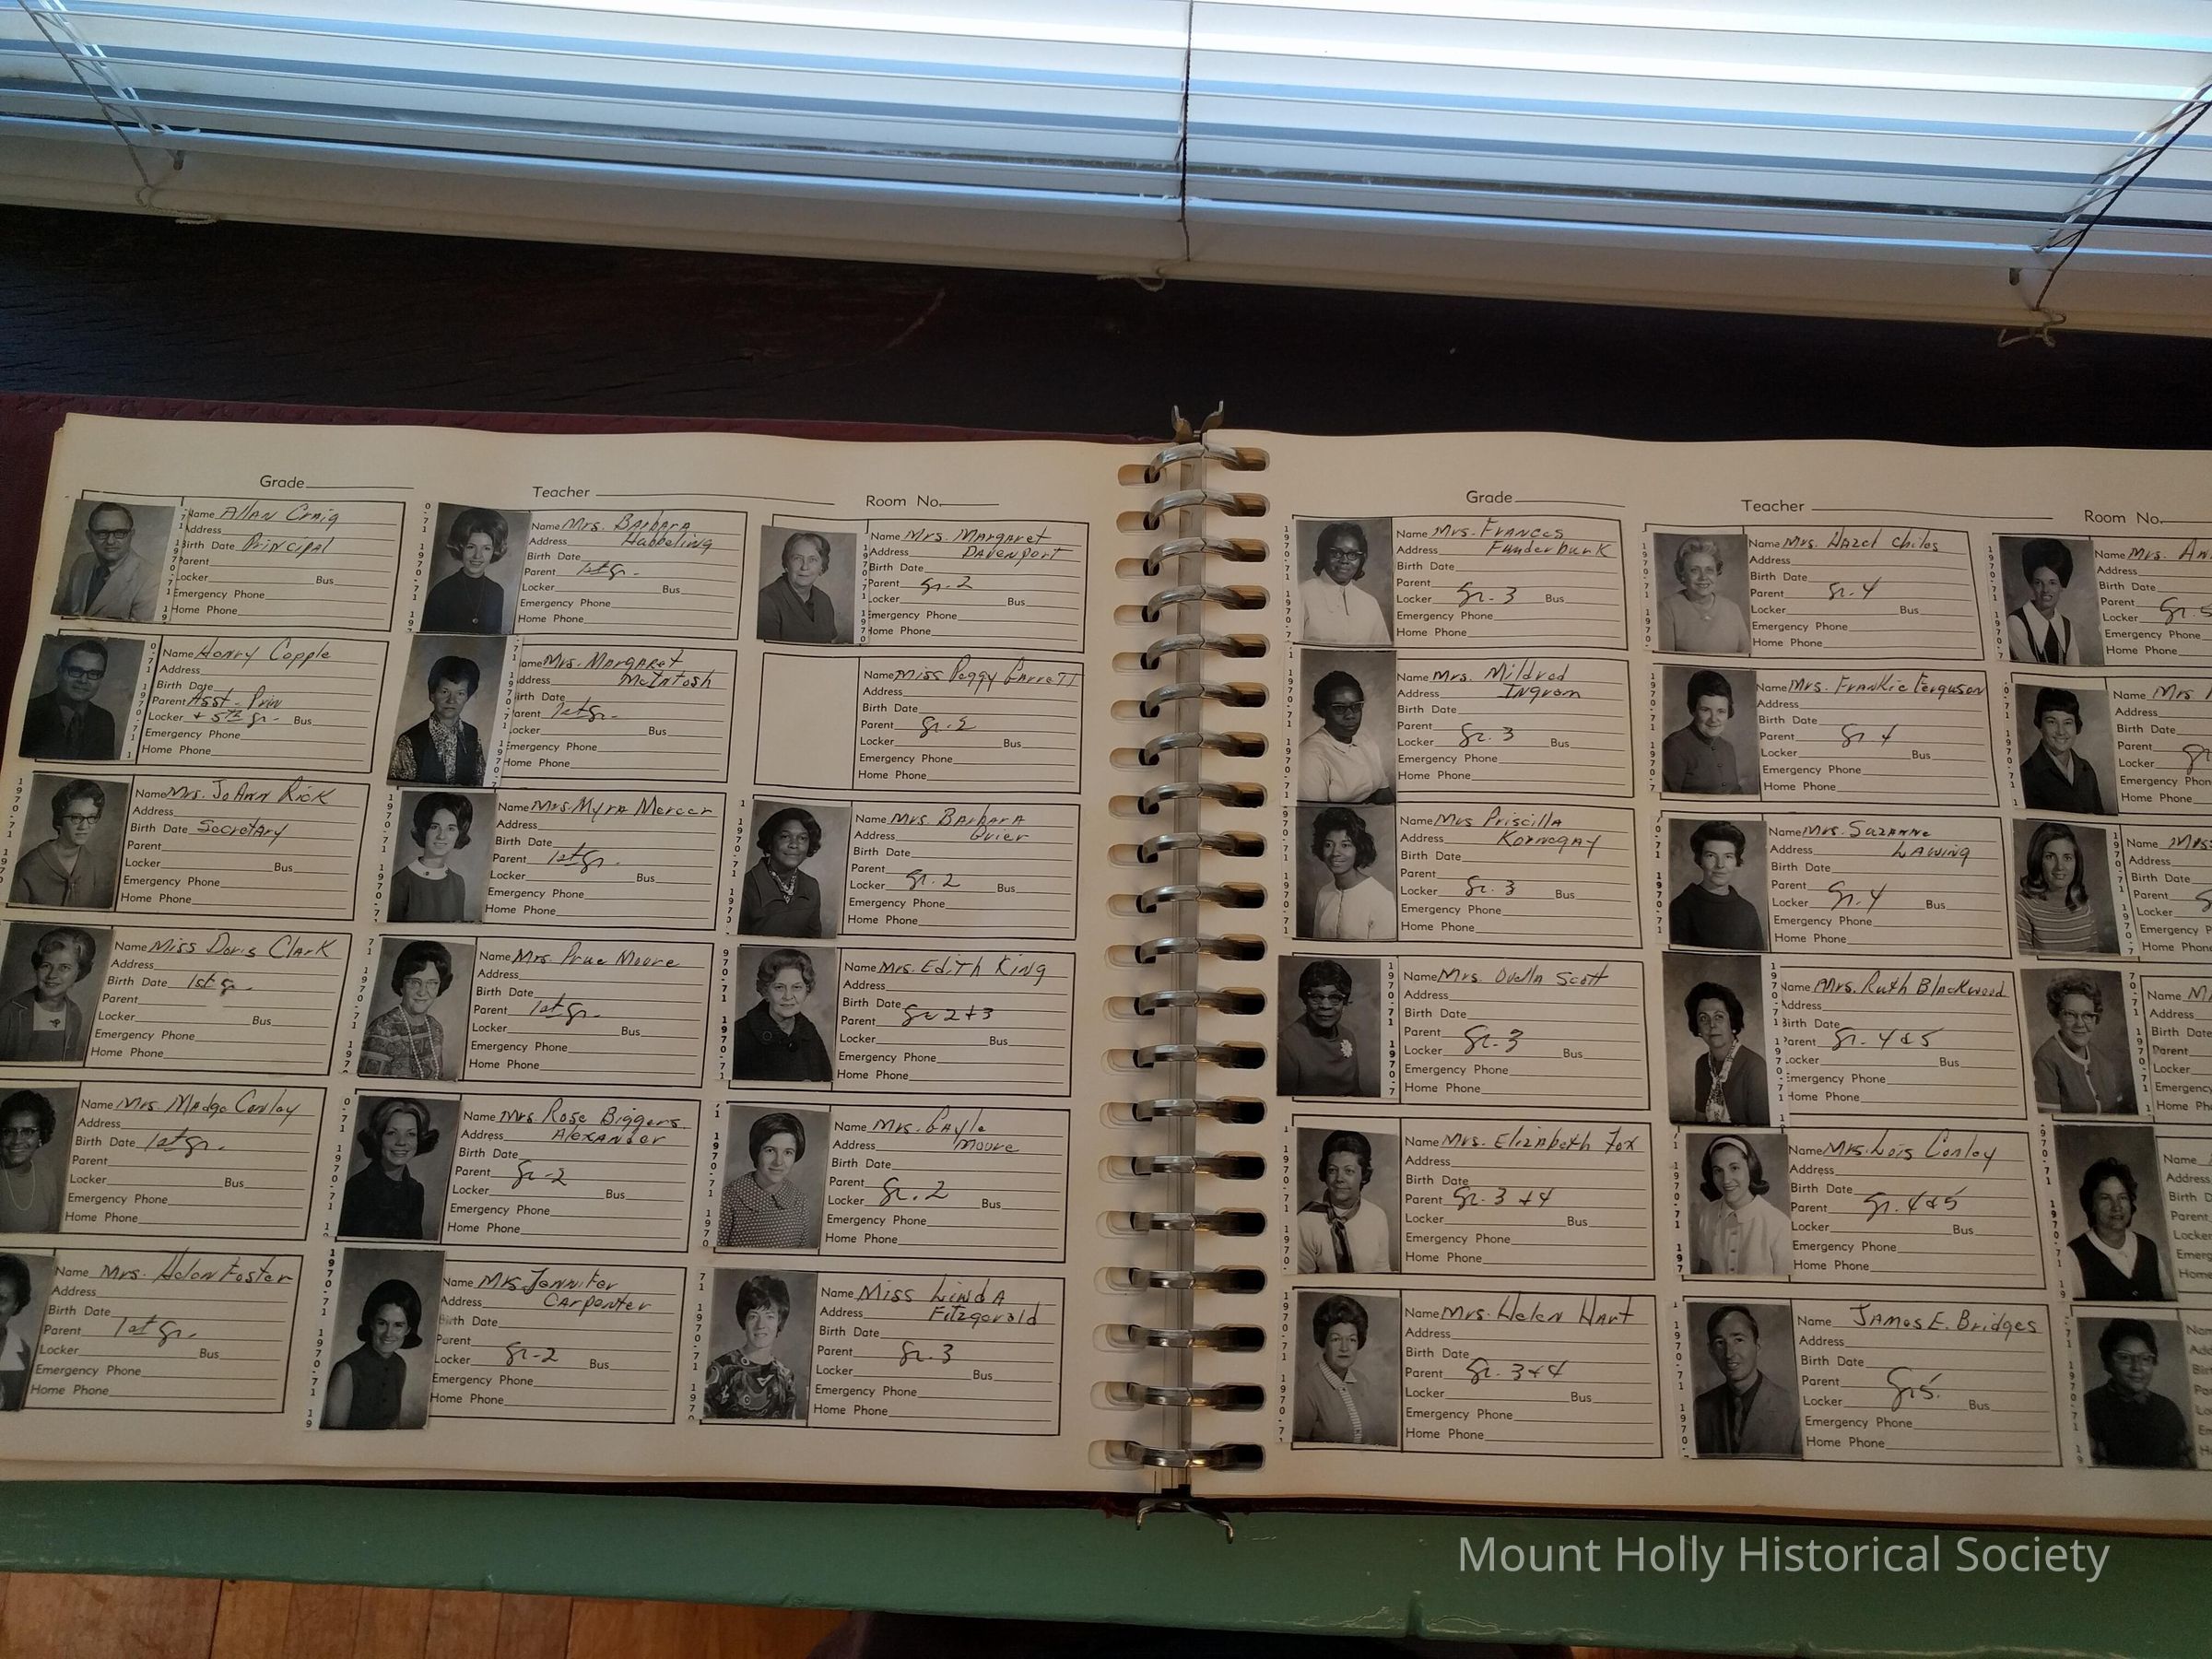 Grade
Teacher
Room No.
Name Allan Craig
Address
Birth Date Principal
Parent
Locker Bus
Emergency Phone
Home Phone
Name Henry Copple
Address
Birth Date
Parent Asst. Prin
Locker + 5th gr. Bus
Emergency Phone
Home Phone
Name Mrs. JoAnn Rick
Address
Birth Date Secretary
Parent
Locker Bus
Emergency Phone
Home Phone
Name Miss Doris Clark
Address
Birth Date 1st gr.
Parent
Locker Bus
Emergency Phone
Home Phone
Name Mrs. Madge Conley
Address
Birth Date 1st gr.
Parent
Locker Bus
Emergency Phone
Home Phone
Name Mrs. Helen Foster
Address
Birth Date
Parent 1st gr.
Locker Bus
Emergency Phone
Home Phone
Name Mrs. Barbara
Address Hubbeling
Birth Date
Parent 1st gr.
Locker Bus
Emergency Phone
Home Phone
ame Mrs. Margaret
ddress McIntosh
irth Date
arent 1st gr.
ocker Bus
Emergency Phone
Home Phone
Name Mrs. Myra Mercer
Address
Birth Date
Parent 1st gr.
Locker Bus
Emergency Phone
Home Phone
Name Mrs. Prue Moore
Address
Birth Date
Parent 1st gr.
Locker Bus
Emergency Phone
Home Phone
Name Mrs. Rose Biggers
Address Alexander
Birth Date
Parent Gr-2
Locker Bus
Emergency Phone
Home Phone
Name Mrs Jennifer
Address Carpenter
Birth Date
Parent
Locker Gr-2 Bus
Emergency Phone
Home Phone
Name Mrs. Margaret
Address Davenport
Birth Date
Parent Gr. 2
Locker Bus
Emergency Phone
Home Phone
Name Miss Peggy Garrett
Address
Birth Date
Parent Gr. 2
Locker Bus
Emergency Phone
Home Phone
Name Mrs. Barbara
Address Grier
Birth Date
Parent
Locker Gr. 2 Bus
Emergency Phone
Home Phone
Name Mrs. Edith King
Address
Birth Date
Parent Gr 2+3
Locker Bus
Emergency Phone
Home Phone
Name Mrs. Gayle
Address Moore
Birth Date
Parent
Locker Gr. 2 Bus
Emergency Phone
Home Phone
Name Miss Linda
Address Fitzgerald
Birth Date
Parent Gr. 3
Locker Bus
Emergency Phone
Home Phone
Grade
Teacher
Room No.
Name Mrs. Frances
Address Funderburk
Birth Date
Parent
Locker Gr. 3 Bus
Emergency Phone
Home Phone
Name Mrs. Mildred
Address Ingram
Birth Date
Parent
Locker Gr. 3 Bus
Emergency Phone
Home Phone
Name Mrs Priscilla
Address Kornegay
Birth Date
Parent
Locker Gr. 3 Bus
Emergency Phone
Home Phone
Name Mrs. Ouella Scott
Address
Birth Date
Parent Gr. 3
Locker Bus
Emergency Phone
Home Phone
Name Mrs. Elizabeth Fox
Address
Birth Date
Parent Gr. 3 +4
Locker Bus
Emergency Phone
Home Phone
Name Mrs. Helen Hart
Address
Birth Date
Parent Gr. 3+4
Locker Bus
Emergency Phone
Home Phone
Name Mrs. Hazel Chiles
Address
Birth Date
Parent Gr. 4
Locker Bus
Emergency Phone
Home Phone
Name Mrs. Frankie Ferguson
Address
Birth Date
Parent Gr. 4
Locker Bus
Emergency Phone
Home Phone
Name Mrs. Suzanne
Address Lawing
Birth Date
Parent
Locker Gr. 4 Bus
Emergency Phone
Home Phone
Name Mrs. Ruth Blackwood
Address
Birth Date
Parent Gr. 4 & 5
Locker Bus
Emergency Phone
Home Phone
Name Mrs. Lois Conley
Address
Birth Date
Parent Gr. 4&5
Locker Bus
Emergency Phone
Home Phone
Name James E. Bridges
Address
Birth Date
Parent
Locker Gr 5. Bus
Emergency Phone
Home Phone
Name Mrs. An
Address
Birth Date
Parent Gr. 5
Locker
Emergency Phone
Home Phone
Name Mrs
Address
Birth Date
Parent
Locker Gr
Emergency Phone
Home Phone
Name Mrs.
Address
Birth Date
Parent
Locker
Emergency P
Home Phone
Name M
Address
Birth Date
Parent
Locker
Emergency
Home Ph
Name
Address
Birth Dat
Parent
Locker
Emerg
Home
Mount Holly Historical Society